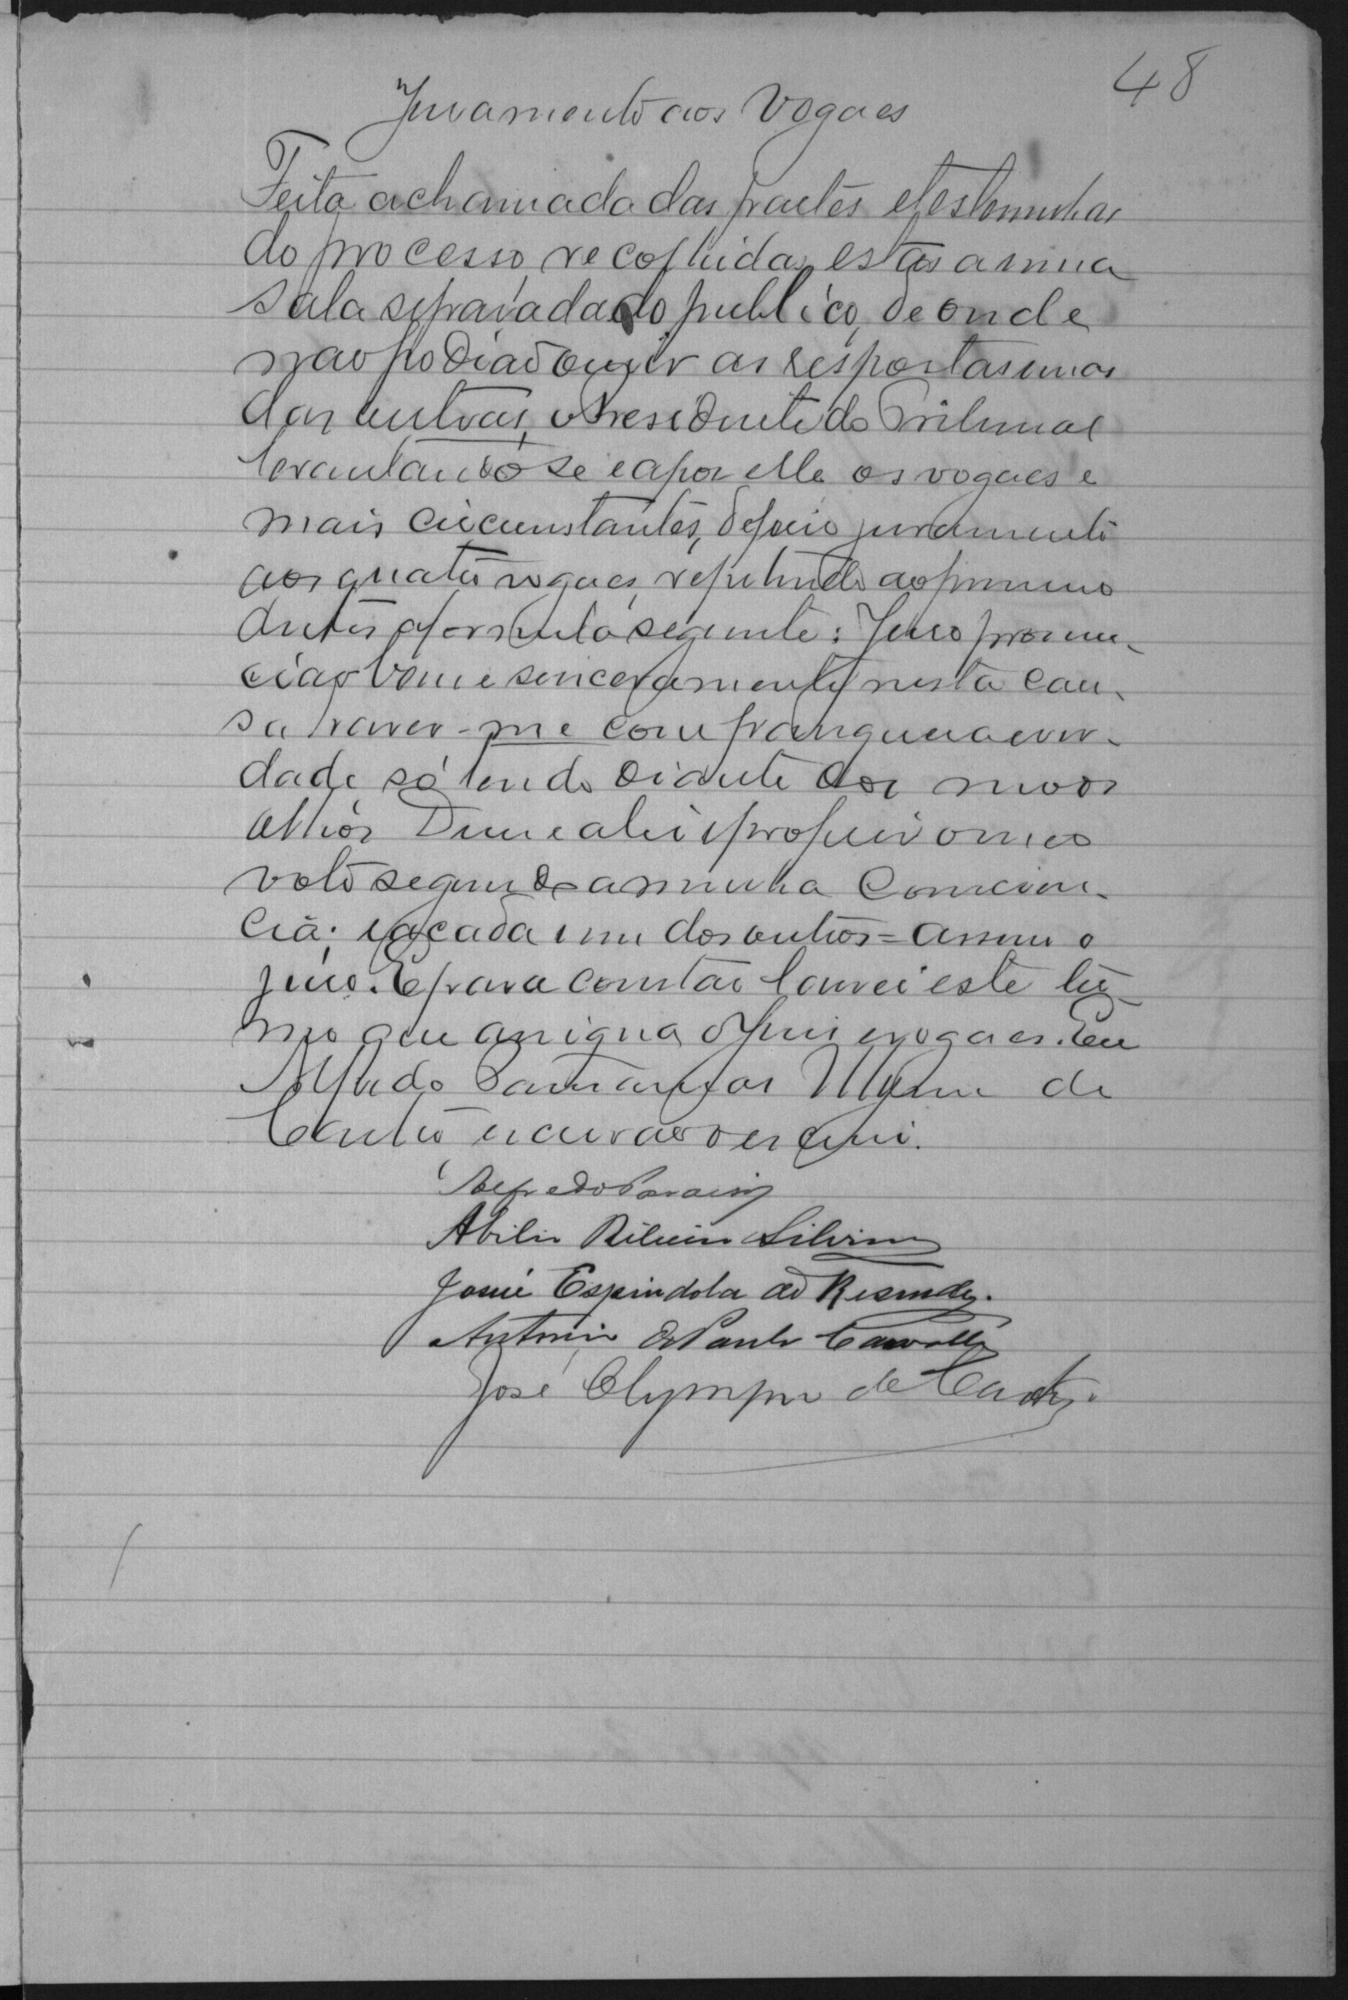 48
Juramento aos Vogaes
Feita a chamada das partes e testemunhas
do processo, recolhidas estas a uma
sala separada do publico, de onde
não podião ouvir as respostas umas
das outras, o Presidente do Tribunal
levantando se e apos elle os vogaes e
mais circunstantes, deferio juramento
aos quatro vogaes, repetindo ao primeiro
dentes a formula seguinte: Juro pronun-
ciar bem e sinceramente nesta cau-
sa haver-me com franqueza e ver-
dade só tendo diante dos meos
olhos Deus e a lei e proferir o meo
voto segundo a minha conscien-
cia; e a cada um dos outros = assim o
juro. E para constar lavrei este ter-
mo que assigna o Juiz e vogaes. Eu
de
Castro escrivão o escrevi.
Abilio Ribeiro
José Espindola de Resende.
Antonio de Paula Carvalho
José Olympio de Castro.